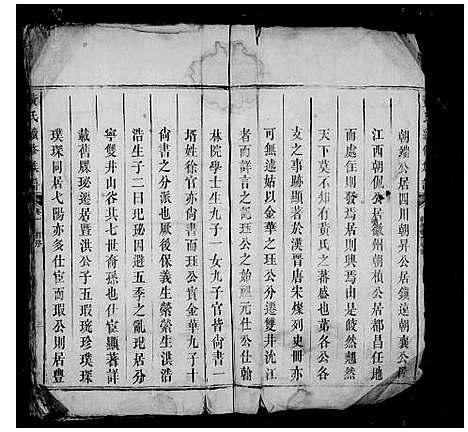 朝瓊公居四川朝昇公居鎮遠朝襄公居
江西朝佩公居徽州朝楨公居都昌任地
而處任則發焉居則興焉由是皎然翹然
天下莫不知有黃氏之蕃盛也第各公各
支之事跡顯著於漢晉唐宋燦列史冊亦
可無遠姑以金華之玨公分遷雙井沈江
者而詳言之記玨公之始祖元公仕翰
林院學士生九子一女九子官皆尚書一
壻姓徐官亦尚書而玨公實金華九子十
尚書之分派也厥後保義生榮榮生湛浩
浩生子二曰玘珌因避五季之亂玘居分
寧雙井山谷其七世裔孫也仕宦顯著詳
載舊牒珌遷居暨洪公子五瑕琉珍璞琛
璞琛同居弋陽亦多仕宦而瑕公則居豐
黃氏續修族譜